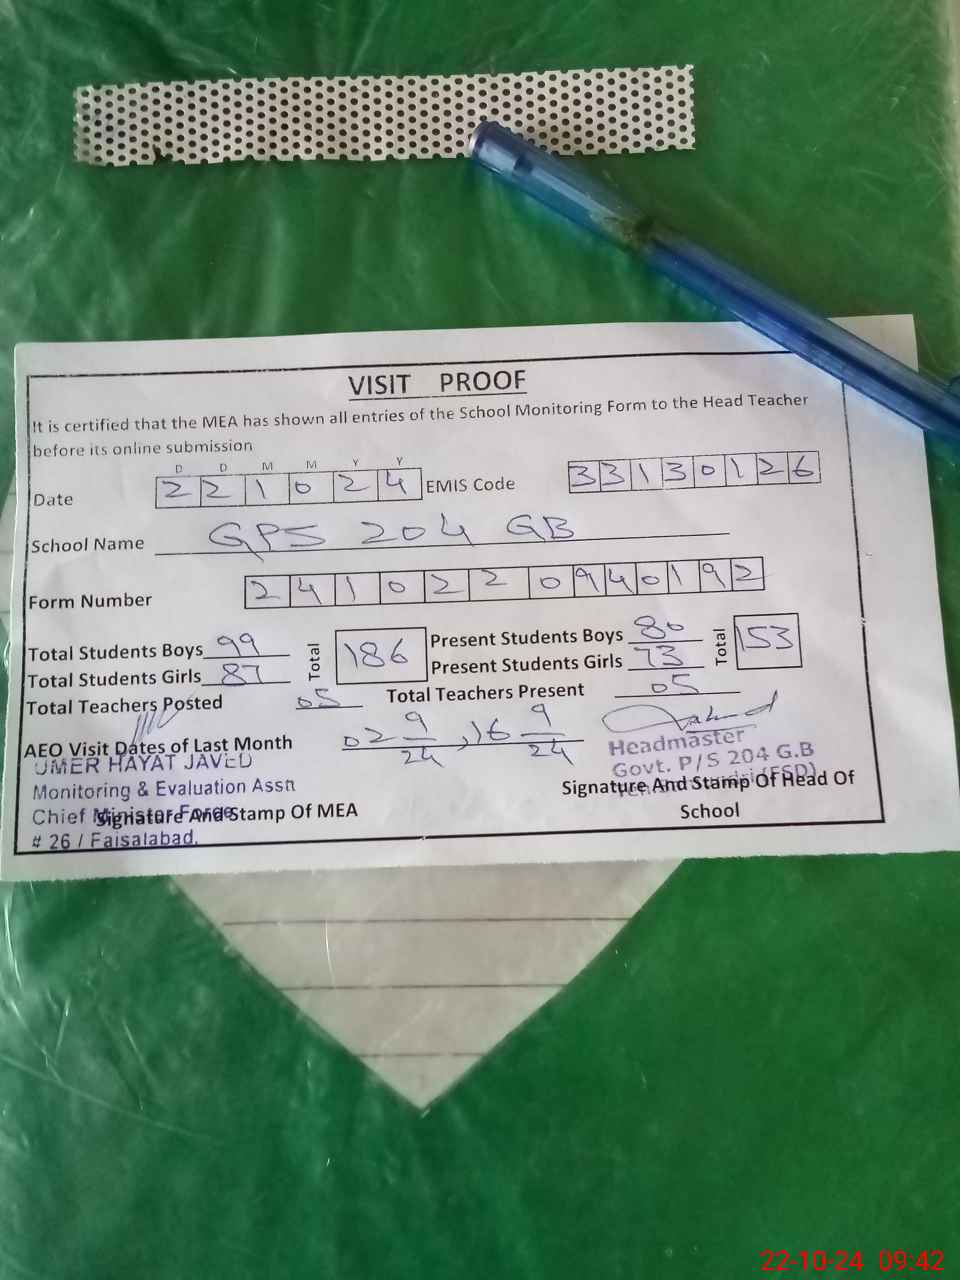 VISIT PROOF
It is certified that the MEA has shown all entries of the School Monitoring Form to the Head Teacher
before its online submission
D D M M Y Y
Date 2 2 1 0 2 4 EMIS Code 3 3 1 3 0 1 2 6
School Name GPS 204 GB
Form Number 2 4 1 0 2 2 0 9 4 0 1 9 2
Total Students Boys 99 Total 186 Present Students Boys 80 Total 153
Total Students Girls 87 Present Students Girls 73
Total Teachers Posted 05 Total Teachers Present 05
AEO Visit Dates of Last Month 02 9/24, 16 9/24
UMER HAYAT JAVED
Monitoring & Evaluation Asstt
Chief Minister Force
# 26 / Faisalabad.
Signature And Stamp Of MEA
Headmaster
Govt. P/S 204 G.B
(FSD)
Signature And Stamp Of Head Of
School
22-10-24 09:42